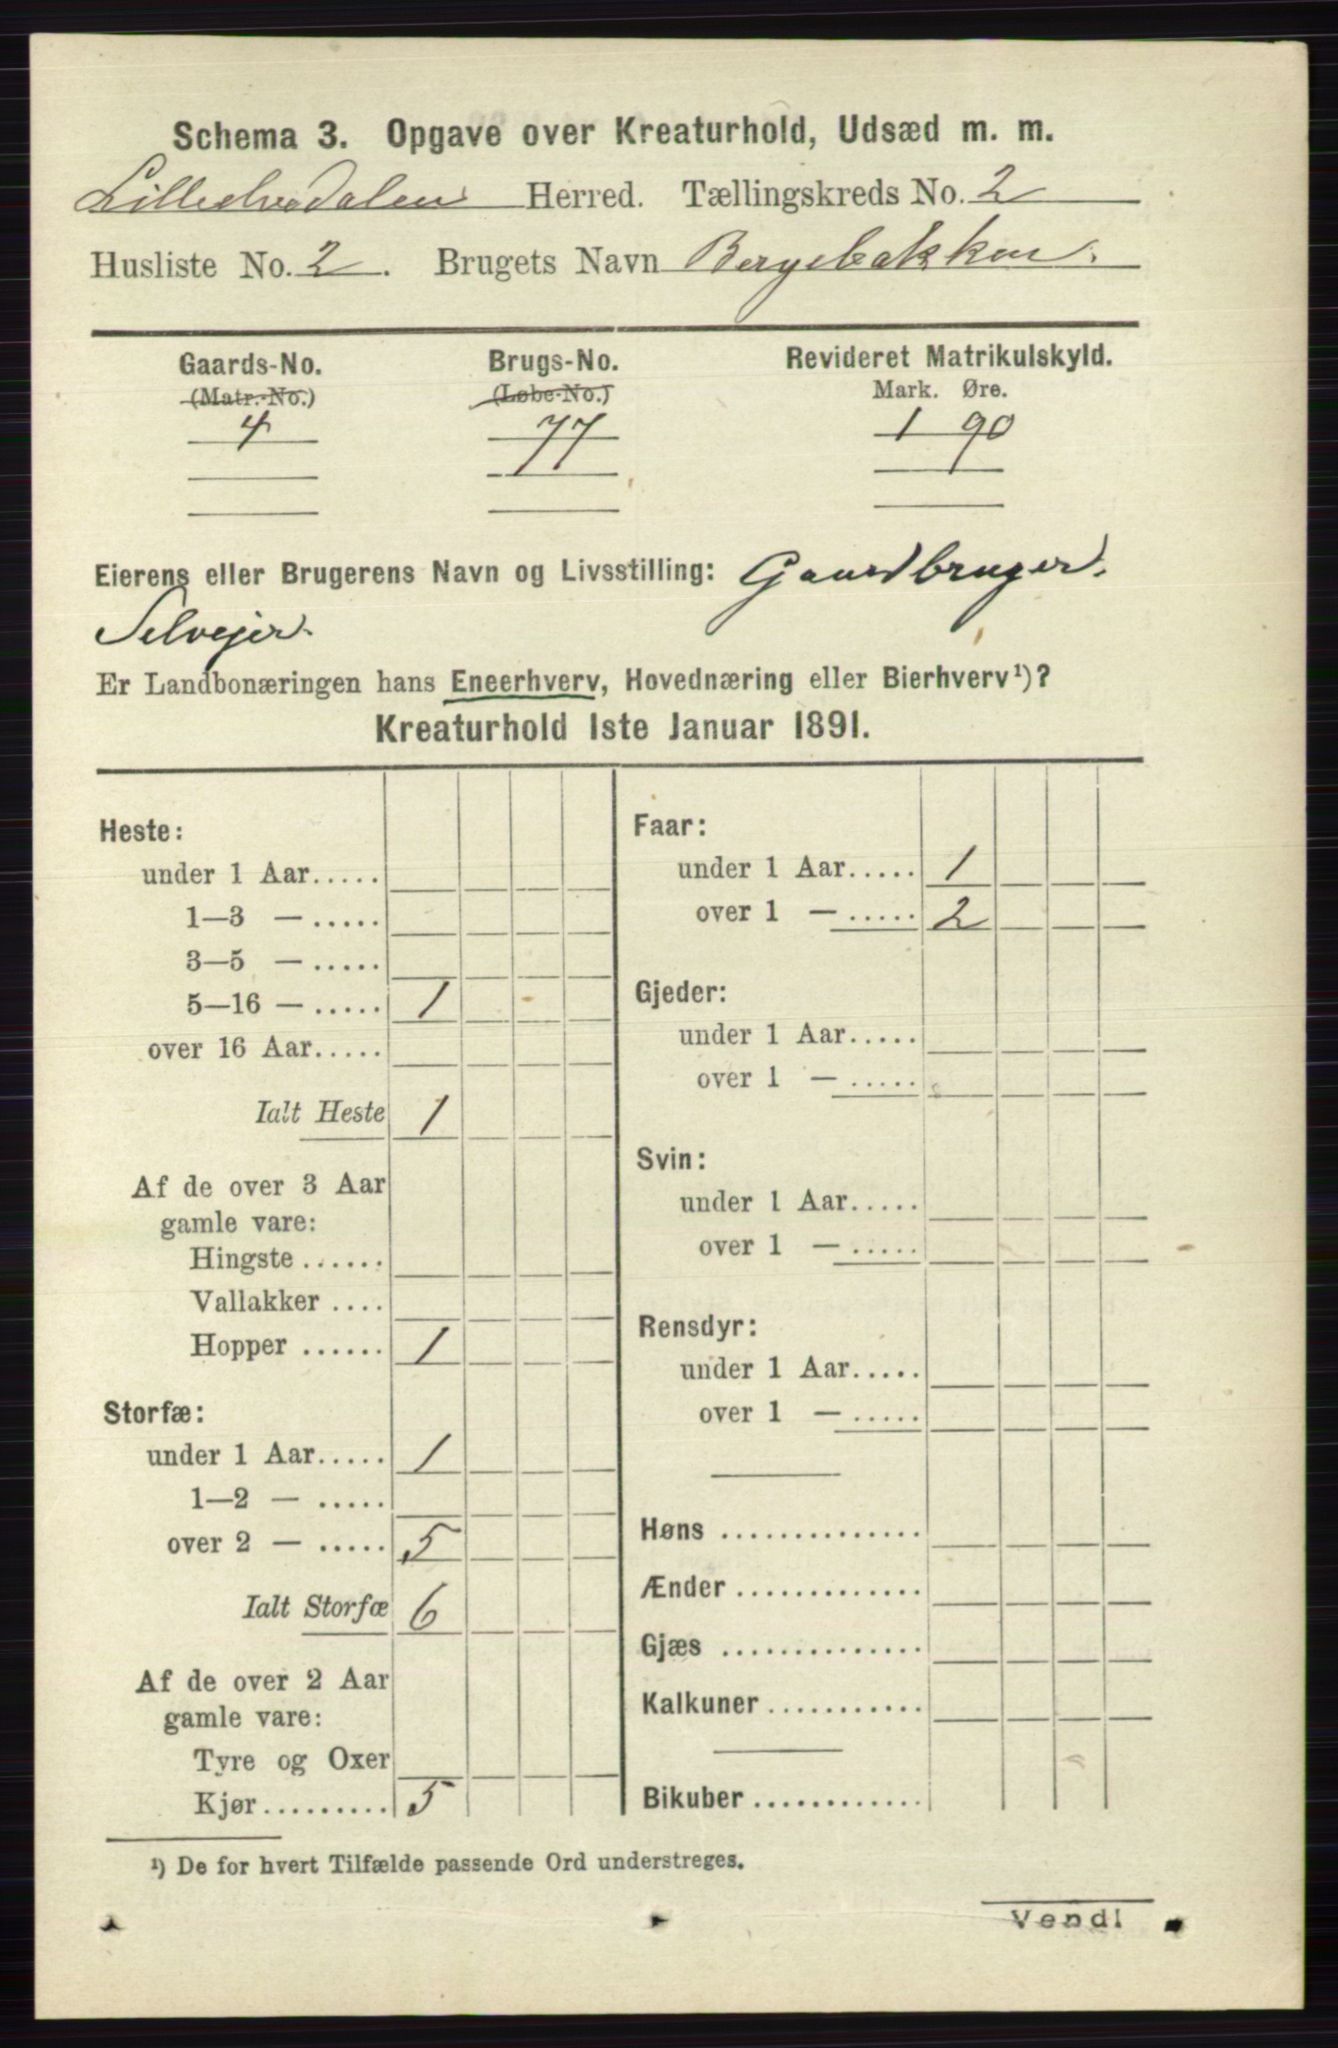 Schema 3. Opgave over Kreaturhold, Udsæd m. m.
Lilleelvedalen Herred. Tællingskreds No. 2
Husliste No. 2. Brugets Navn Bergebakken.
Gaards-No. Brugs-No. Revideret Matrikulskyld.
(Matr.-No.) (Løbe-No.) Mark. Øre.
4 77 1 90
Eierens eller Brugerens Navn og Livsstilling: Gaardbruger.
Selvejer.
Er Landbonæringen hans Eneerhverv, Hovednæring eller Bierhverv¹)?
Kreaturhold 1ste Januar 1891.
Heste:
under 1 Aar.....
1—3 — .....
3—5 — .....
5—16 — ..... 1
over 16 Aar.....
Ialt Heste 1
Af de over 3 Aar
gamle vare:
Hingste ......
Vallakker ....
Hopper ...... 1
Storfæ:
under 1 Aar..... 1
1—2 — .....
over 2 — ..... 5
Ialt Storfæ 6
Af de over 2 Aar
gamle vare:
Tyre og Oxer
Kjør.......... 5
Faar:
under 1 Aar..... 1
over 1 — ..... 2
Gjeder:
under 1 Aar.....
over 1 — .....
Svin:
under 1 Aar.....
over 1 — .....
Rensdyr:
under 1 Aar.....
over 1 — .....
Høns ..............
Ænder .............
Gjæs ..............
Kalkuner ...........
Bikuber ............
¹) De for hvert Tilfælde passende Ord understreges.
Vend!